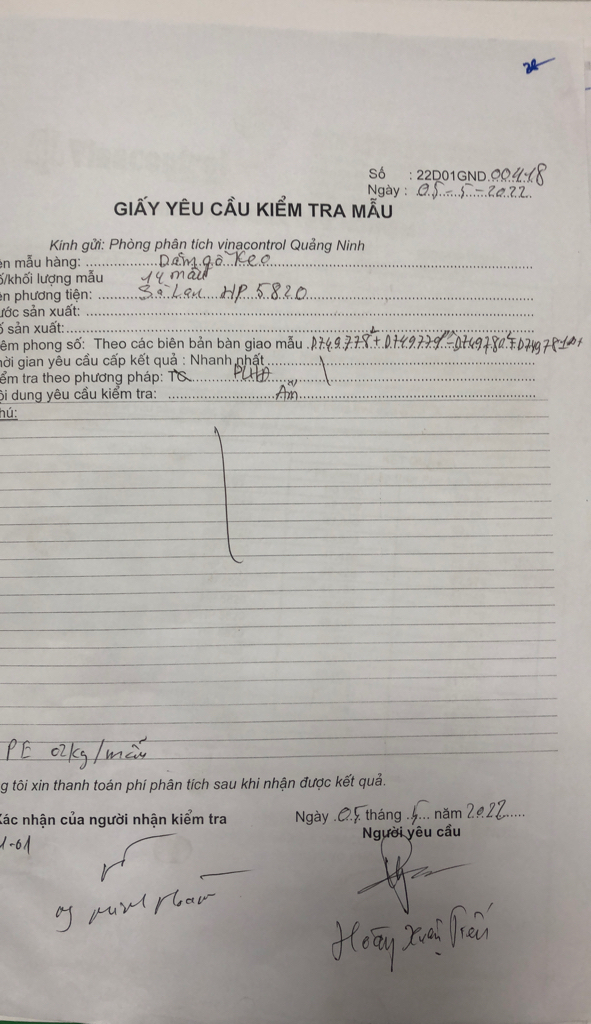 Số : 22D01GND.00418
Ngày : 05-5-2022
GIẤY YÊU CẦU KIỂM TRA MẪU
Kính gửi: Phòng phân tích vinacontrol Quảng Ninh
ên mẫu hàng: Dăm gỗ Keo
ố/khối lượng mẫu 14 mẫu
ên phương tiện: Sà Lan HP 5820
ước sản xuất:
ố sản xuất:
êm phong số: Theo các biên bản bàn giao mẫu D749778 + D749779 - D749780 + D749781
ời gian yêu cầu cấp kết quả : Nhanh nhất
ểm tra theo phương pháp:
ội dung yêu cầu kiểm tra: Ẩm
hú:
PE 02kg/mẫu
g tôi xin thanh toán phí phân tích sau khi nhận được kết quả.
Xác nhận của người nhận kiểm tra
Ngày 05 tháng 5 năm 2022
Người yêu cầu
-01
Hoàng Xuân